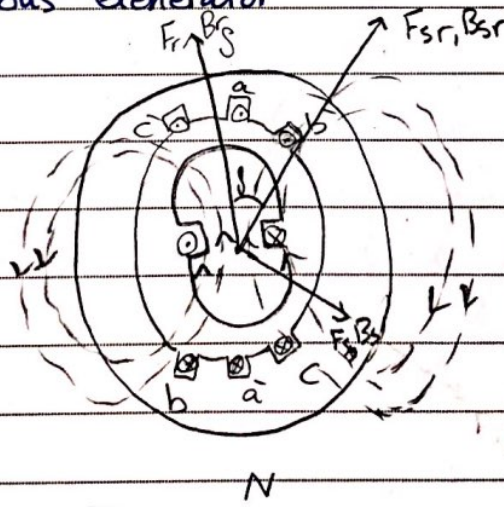 ous Generator
Fr Br S Fsr, Bsr
a
c' b'
Fs Bs
b a' c
N